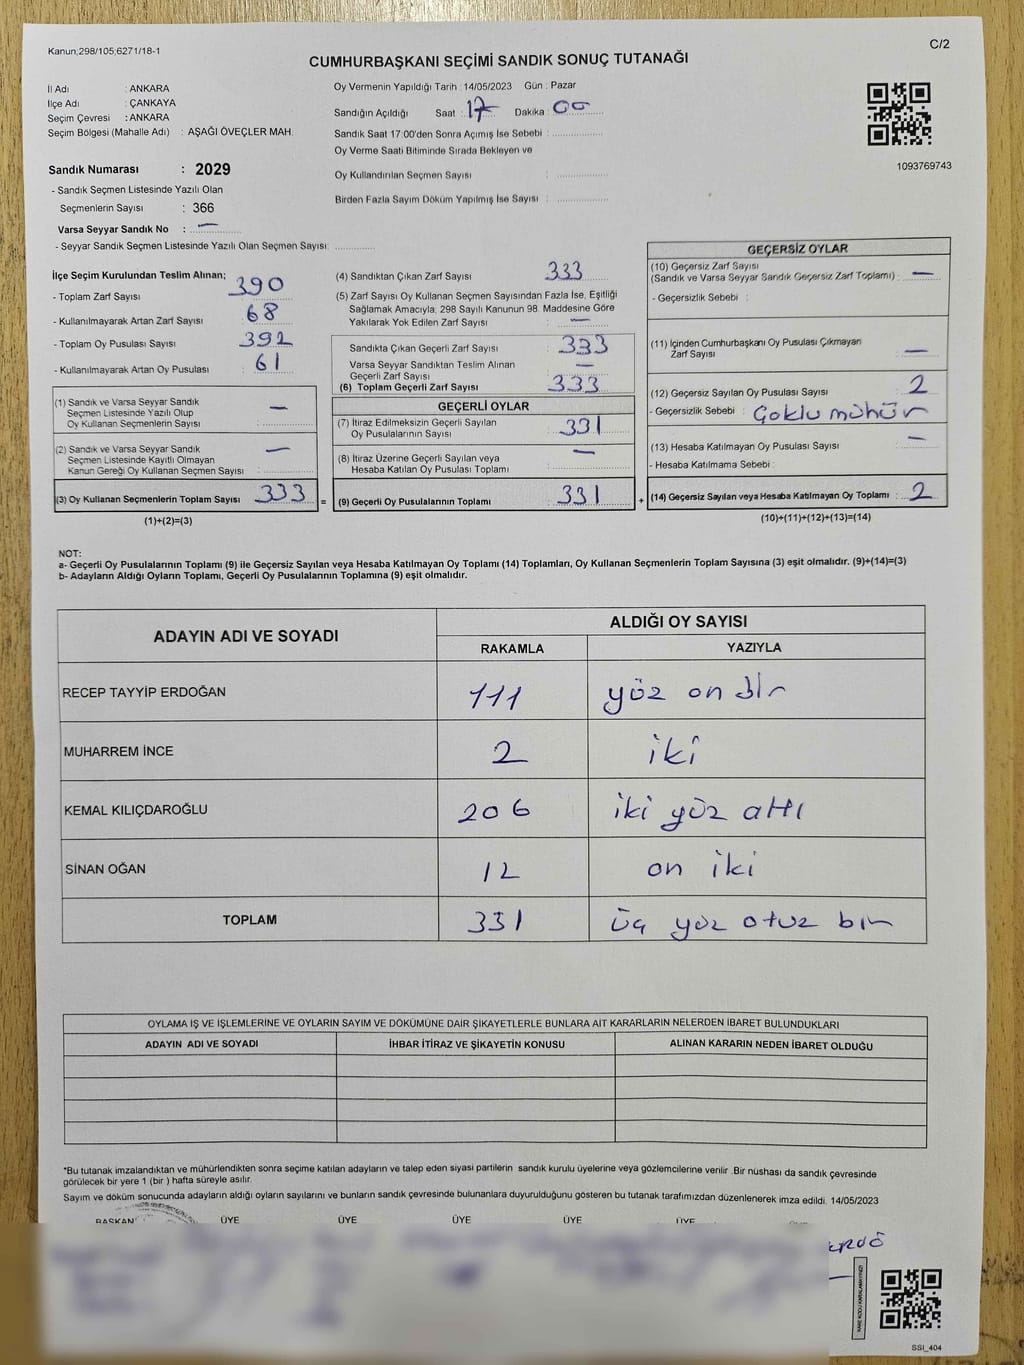 Kanun;298/105;6271/18-1
C/2
CUMHURBAŞKANI SEÇİMİ SANDIK SONUÇ TUTANAĞI
İl Adı : ANKARA
İlçe Adı : ÇANKAYA
Seçim Çevresi : ANKARA
Seçim Bölgesi (Mahalle Adı) : AŞAĞI ÖVEÇLER MAH.
Oy Vermenin Yapıldığı Tarih : 14/05/2023 Gün : Pazar
Sandığın Açıldığı Saat : 17 Dakika : 00
Sandık Saat 17:00'den Sonra Açımış İse Sebebi :
Oy Verme Saati Bitiminde Sırada Bekleyen ve
Oy Kullandırılan Seçmen Sayısı :
Birden Fazla Sayım Döküm Yapılmış İse Sayısı :
1093769743
Sandık Numarası : 2029
- Sandık Seçmen Listesinde Yazılı Olan
Seçmenlerin Sayısı : 366
Varsa Seyyar Sandık No : —
- Seyyar Sandık Seçmen Listesinde Yazılı Olan Seçmen Sayısı:
İlçe Seçim Kurulundan Teslim Alınan;
- Toplam Zarf Sayısı : 390
- Kullanılmayarak Artan Zarf Sayısı : 68
- Toplam Oy Pusulası Sayısı : 392
- Kullanılmayarak Artan Oy Pusulası : 61
(1) Sandık ve Varsa Seyyar Sandık
Seçmen Listesinde Yazılı Olup
Oy Kullanan Seçmenlerin Sayısı : —
(2) Sandık ve Varsa Seyyar Sandık
Seçmen Listesinde Kayıtlı Olmayan
Kanun Gereği Oy Kullanan Seçmen Sayısı : —
(3) Oy Kullanan Seçmenlerin Toplam Sayısı : 333
(1)+(2)=(3)
(4) Sandıktan Çıkan Zarf Sayısı : 333
(5) Zarf Sayısı Oy Kullanan Seçmen Sayısından Fazla İse, Eşitliği
Sağlamak Amacıyla, 298 Sayılı Kanunun 98. Maddesine Göre
Yakılarak Yok Edilen Zarf Sayısı : —
Sandıkta Çıkan Geçerli Zarf Sayısı : 333
Varsa Seyyar Sandıktan Teslim Alınan
Geçerli Zarf Sayısı : —
(6) Toplam Geçerli Zarf Sayısı : 333
GEÇERLİ OYLAR
(7) İtiraz Edilmeksizin Geçerli Sayılan
Oy Pusulalarının Sayısı : 331
(8) İtiraz Üzerine Geçerli Sayılan veya
Hesaba Katılan Oy Pusulası Toplamı : —
= (9) Geçerli Oy Pusulalarının Toplamı : 331 +
GEÇERSİZ OYLAR
(10) Geçersiz Zarf Sayısı
(Sandık ve Varsa Seyyar Sandık Geçersiz Zarf Toplamı) : —
- Geçersizlik Sebebi :
(11) İçinden Cumhurbaşkanı Oy Pusulası Çıkmayan
Zarf Sayısı : —
(12) Geçersiz Sayılan Oy Pusulası Sayısı : 2
- Geçersizlik Sebebi : Çoklu mühür
(13) Hesaba Katılmayan Oy Pusulası Sayısı : —
- Hesaba Katılmama Sebebi :
(14) Geçersiz Sayılan veya Hesaba Katılmayan Oy Toplamı : 2
(10)+(11)+(12)+(13)=(14)
NOT:
a- Geçerli Oy Pusulalarının Toplamı (9) ile Geçersiz Sayılan veya Hesaba Katılmayan Oy Toplamı (14) Toplamları, Oy Kullanan Seçmenlerin Toplam Sayısına (3) eşit olmalıdır. (9)+(14)=(3)
b- Adayların Aldığı Oyların Toplamı, Geçerli Oy Pusulalarının Toplamına (9) eşit olmalıdır.
ADAYIN ADI VE SOYADI ALDIĞI OY SAYISI
RAKAMLA YAZIYLA
RECEP TAYYİP ERDOĞAN 111 yüz on bir
MUHARREM İNCE 2 iki
KEMAL KILIÇDAROĞLU 206 iki yüz altı
SİNAN OĞAN 12 on iki
TOPLAM 331 üç yüz otuz bir
OYLAMA İŞ VE İŞLEMLERİNE VE OYLARIN SAYIM VE DÖKÜMÜNE DAİR ŞİKAYETLERLE BUNLARA AİT KARARLARIN NELERDEN İBARET BULUNDUKLARI
ADAYIN ADI VE SOYADI İHBAR İTİRAZ VE ŞİKAYETİN KONUSU ALINAN KARARIN NEDEN İBARET OLDUĞU
*Bu tutanak imzalandıktan ve mühürlendikten sonra seçime katılan adayların ve talep eden siyasi partilerin sandık kurulu üyelerine veya gözlemcilerine verilir .Bir nüshası da sandık çevresinde
görülecek bir yere 1 (bir ) hafta süreyle asılır.
Sayım ve döküm sonucunda adayların aldığı oyların sayılarını ve bunların sandık çevresinde bulunanlara duyurulduğunu gösteren bu tutanak tarafımızdan düzenlenerek imza edildi. 14/05/2023
BAŞKAN ÜYE ÜYE ÜYE ÜYE ÜYE
SSI_404